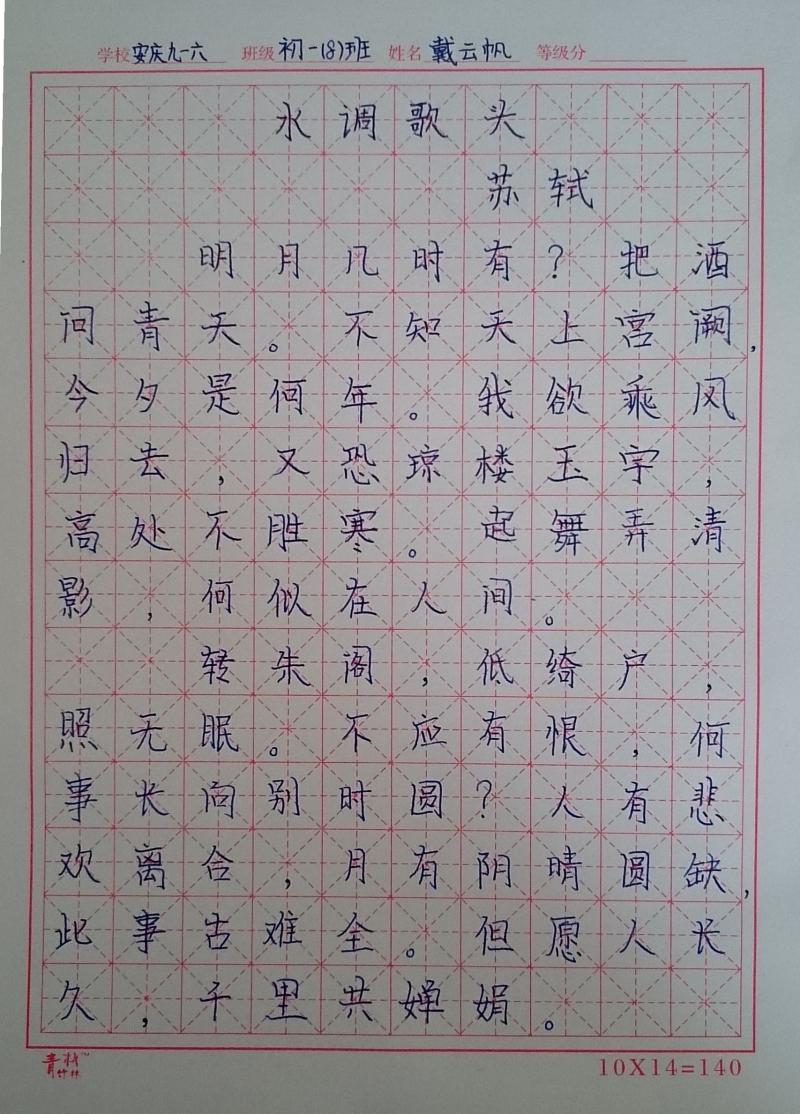 学校 安庆九一六 班级 初一(8)班 姓名 戴云帆 等级分
水调歌头
苏轼
明月几时有？把酒
问青天。不知天上宫阙，
今夕是何年。我欲乘风
归去，又恐琼楼玉宇，
高处不胜寒。起舞弄清
影，何似在人间。
转朱阁，低绮户，
照无眠。不应有恨，何
事长向别时圆？人有悲
欢离合，月有阴晴圆缺，
此事古难全。但愿人长
久，千里共婵娟。
青竹林 10X14=140